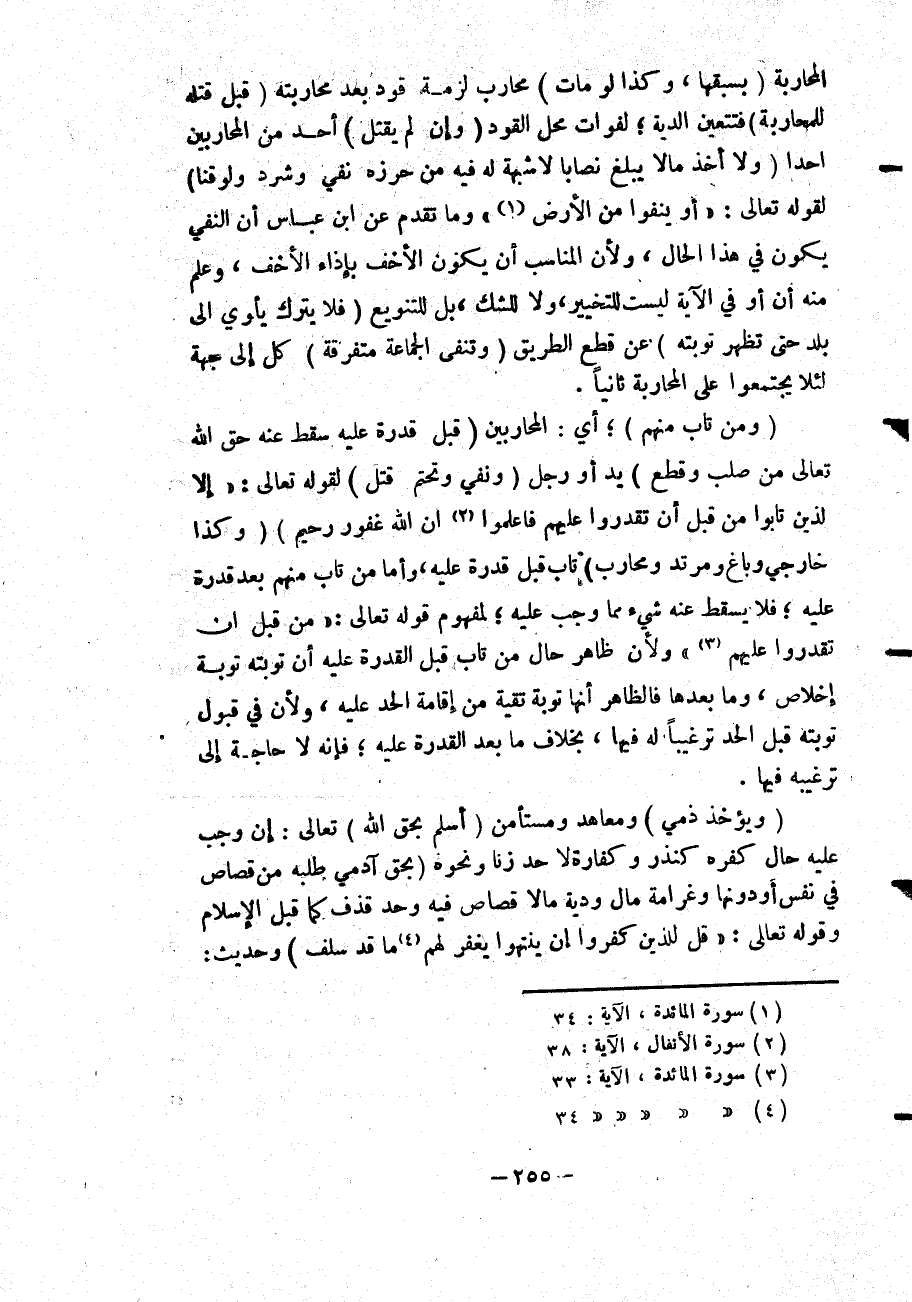 المحاربة ( بسبقها ، وكذا لو مات ) محارب لزمـة قود بعد محاربته ( قبل قتله
للمحاربة ) فتتعين الدية ؛ لفوات محل القود ( وإن لم يقتل ) أحـد من المحاربين
احدا ( ولا أخذ مالا يبلغ نصابا لا شبهة له فيه من حرزه نفي وشرد ولو قنا )
لقوله تعالى : « أو ينفوا من الأرض (١) » وما تقدم عن ابن عبـاس أن النفي
يكون في هذا الحال ، ولأن المناسب أن يكون الأخف بإذاء الأخف ، وعلم
منه أن أو في الآية ليست للتخيير، ولا للشك ، بل للتنويع ( فلا يترك يأوي الى
بلد حتى تظهر توبته ) عن قطع الطريق ( وتنفى الجماعة متفرقة ) كل إلى جهة
لئلا يجتمعوا على المحاربة ثانياً .
( ومن تاب منهم ) ؛ أي : المحاربين ( قبل قدرة عليه سقط عنه حق الله
تعالى من صلب وقطع ) يد أو رجل ( ونفي وتحتم قتل ) لقوله تعالى : « إلا
لذين تابوا من قبل أن تقدروا عليهم فاعلموا (٢) ان الله غفور رحيم ) ( وكذا
خارجي وباغ ومرتد ومحارب ) تاب قبل قدرة عليه، وأما من تاب منهم بعد قدرة
عليه ؛ فلا يسقط عنه شيء مما وجب عليه ؛ لمفهوم قوله تعالى : « من قبل ان
تقدروا عليهم (٣) » ولأن ظاهر حال من تاب قبل القدرة عليه أن توبته توبـة
إخلاص ، وما بعدها فالظاهر أنها توبة تقية من إقامة الحد عليه ، ولأن في قبول
توبته قبل الحد ترغيباً له فيها ، بخلاف ما بعد القدرة عليه ؛ فإنه لا حاجـة إلى
ترغيبه فيها .
( ويؤخذ ذمي ) ومعاهد ومستأمن ( أسلم بحق الله ) تعالى : إن وجب
عليه حال كفره كنذر وكفارة لا حد زنا ونحوه ( بحق آدمي طلبه من قصاص
في نفس أو دونها وغرامة مال ودية مالا قصاص فيه وحد قذف كما قبل الإسلام
وقوله تعالى : « قل للذين كفروا إن ينتهوا يغفر لهم (٤) ما قد سلف ) وحديث :
(١) سورة المائدة ، الآية : ٣٤
(٢) سورة الأنفال ، الآية : ٣٨
(٣) سورة المائدة ، الآية : ٣٣
(٤) » » » » » ٣٤
— ٢٥٥ —